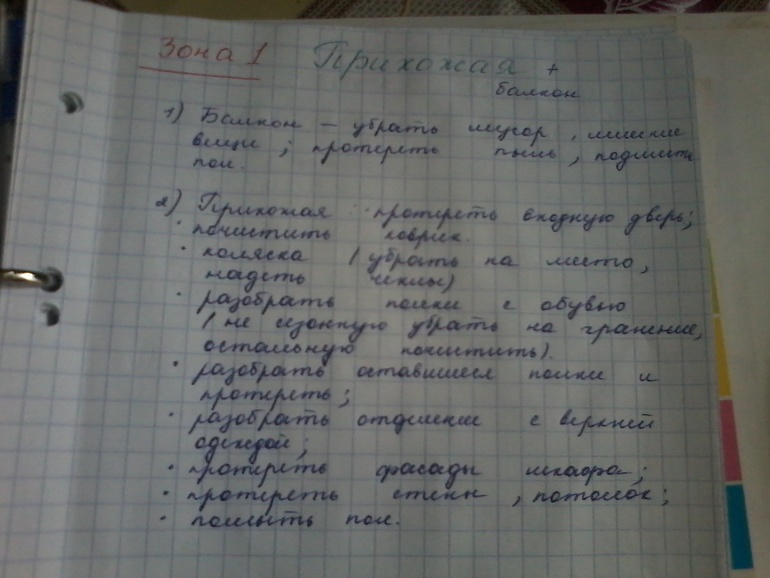 Зона 1 Прихожая +
балкон
1) Балкон – убрать мусор, лишние
вещи; протереть пыль, подмести
пол.
2) Прихожая: · протереть входную дверь;
· почистить коврик.
· коляска (убрать на место,
надеть чехлы)
· разобрать полки с обувью
(не сезонную убрать на хранение,
остальную почистить).
· разобрать оставшиеся полки и
протереть;
· разобрать отделение с верхней
одеждой;
· протереть фасады шкафа;
· протереть стены, потолок;
· помыть пол.